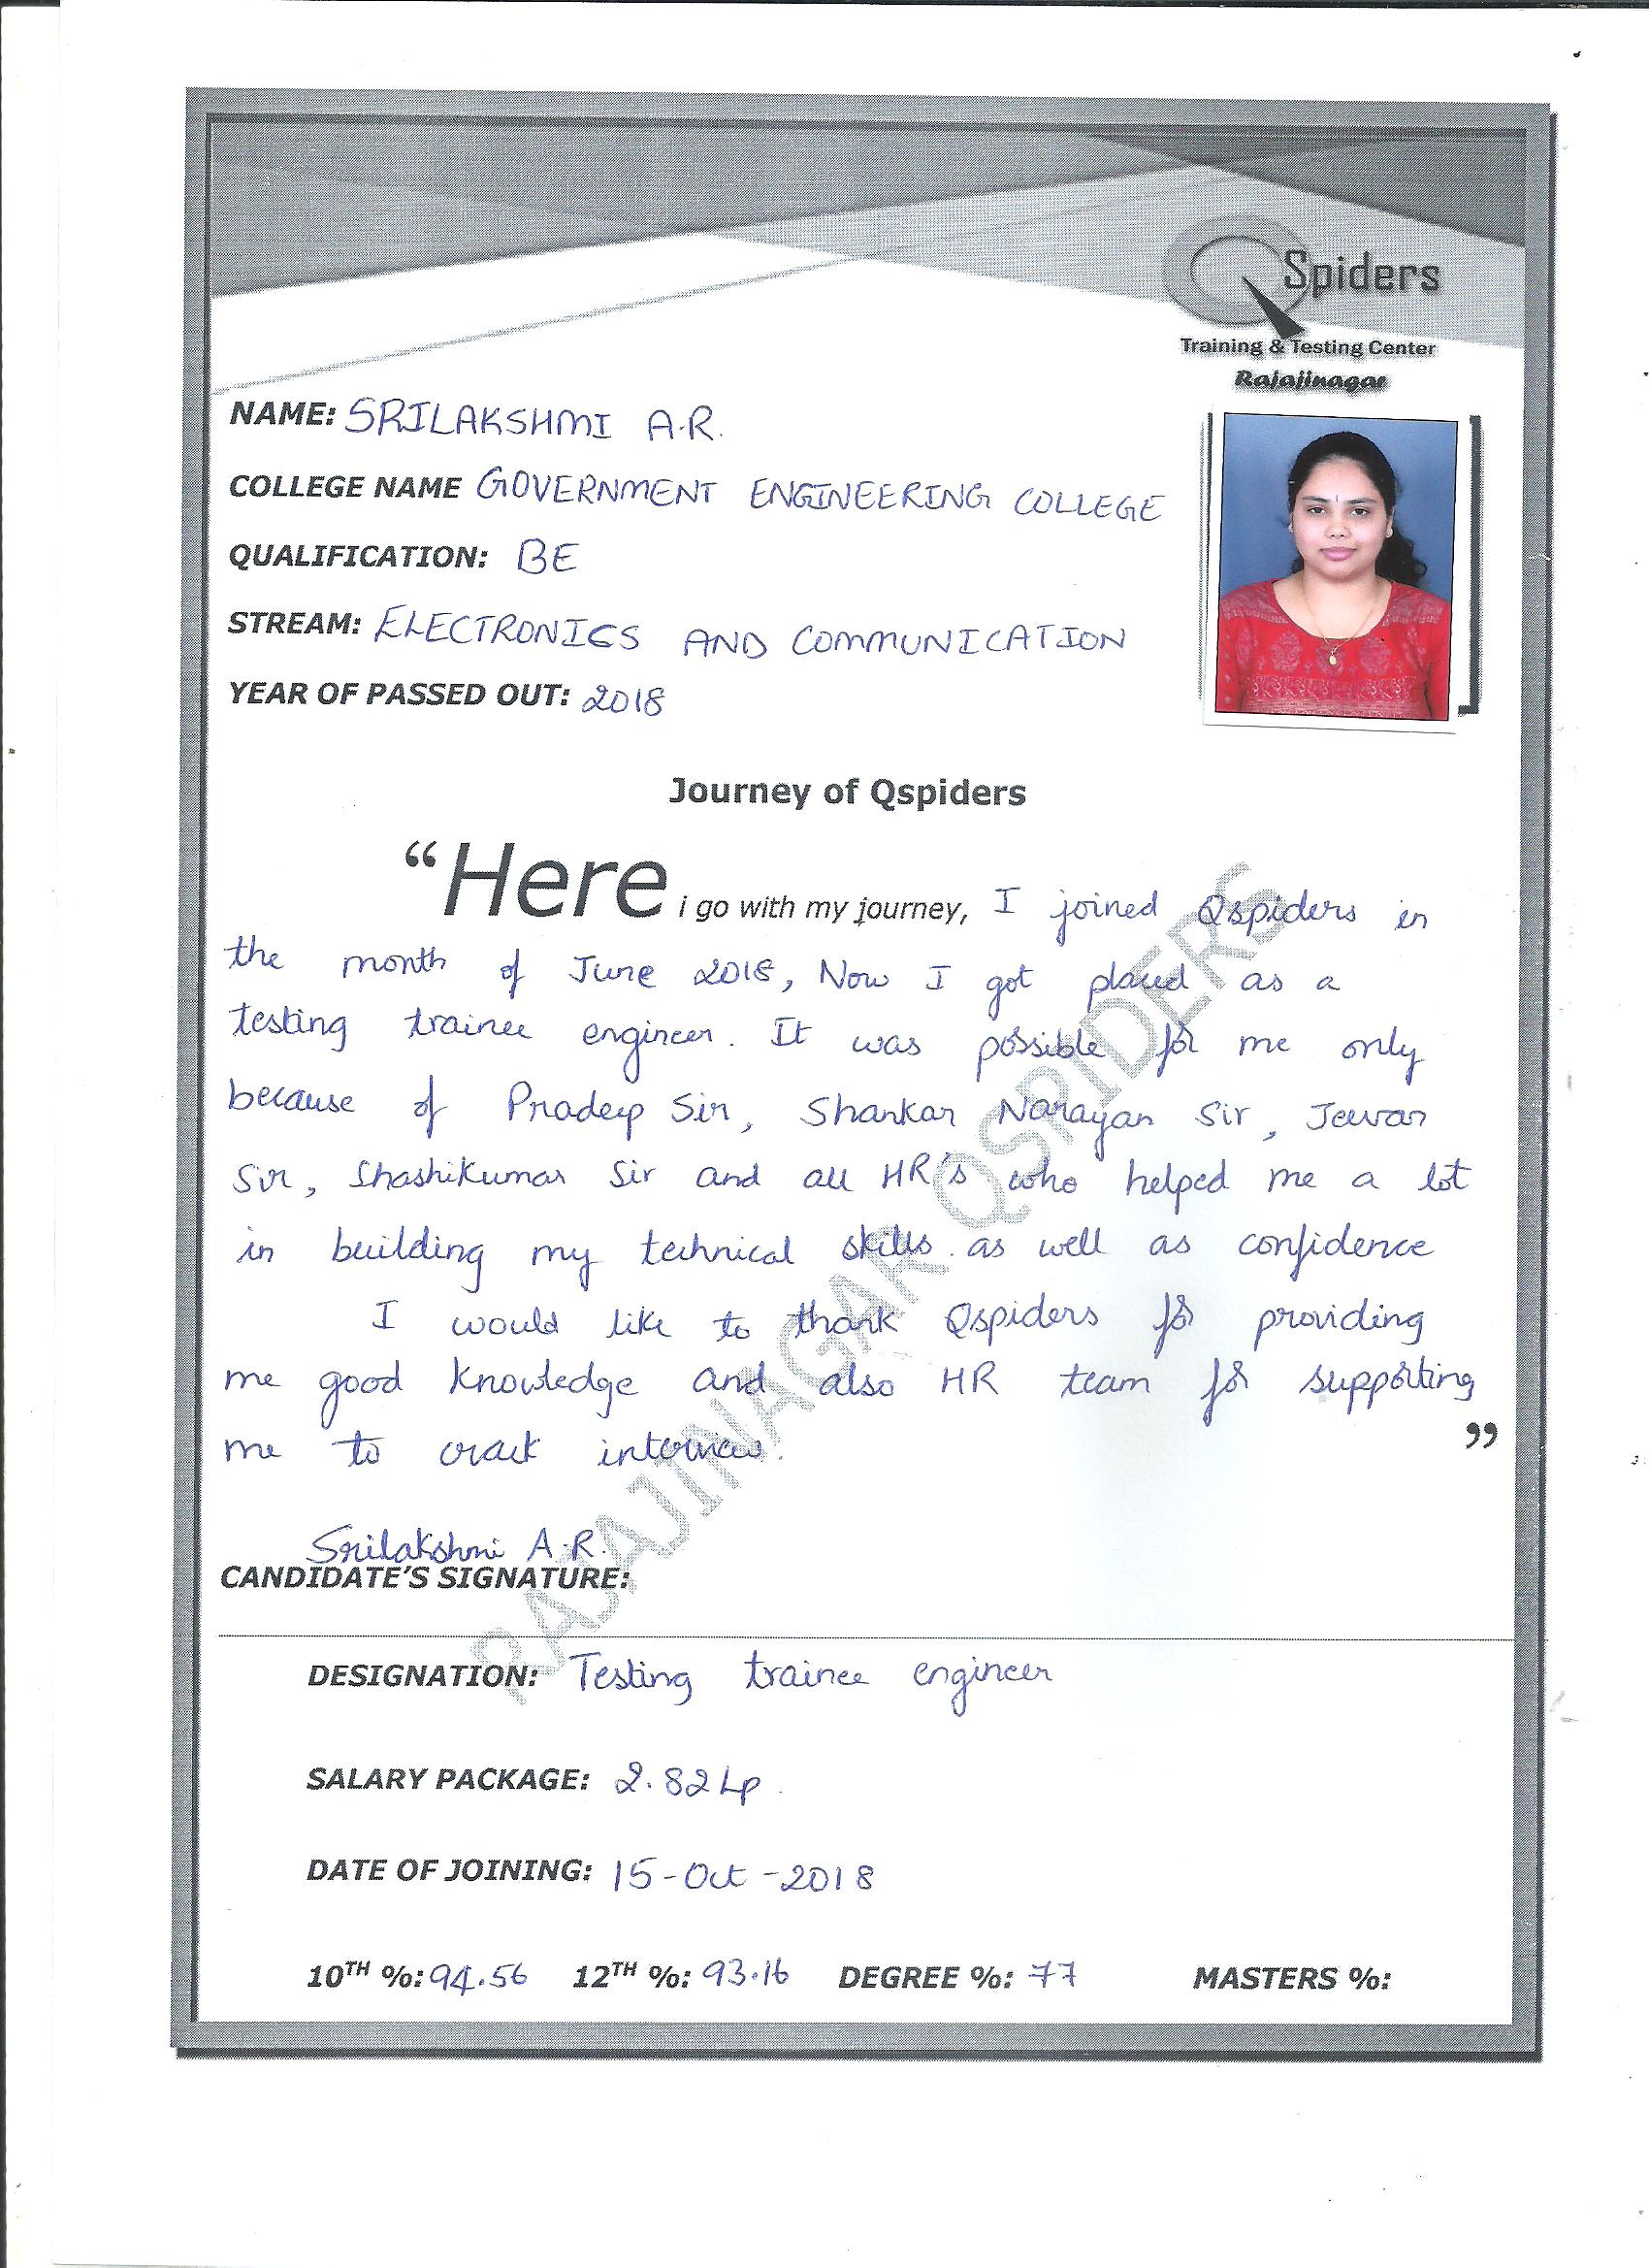 QSpiders
Training & Testing Center
Rajajinagar
NAME: SRILAKSHMI A.R.
COLLEGE NAME GOVERNMENT ENGINEERING COLLEGE
QUALIFICATION: BE
STREAM: ELECTRONICS AND COMMUNICATION
YEAR OF PASSED OUT: 2018
Journey of Qspiders
“Here i go with my journey, I joined Qspiders in
the month of June 2018, Now I got placed as a
testing trainee engineer. It was possible for me only
because of Pradeep Sir, Shankar Narayan Sir, Jeevan
Sir, Shashikumar Sir and all HR's who helped me a lot
in building my technical skills as well as confidence
I would like to thank Qspiders for providing
me good knowledge and also HR team for supporting
me to crack interview. ”
Srilakshmi A.R.
CANDIDATE’S SIGNATURE:
RAJAJINAGAR QSPIDERS
DESIGNATION: Testing trainee engineer
SALARY PACKAGE: 2.82 Lp.
DATE OF JOINING: 15-Oct-2018
10TH %: 94.56 12TH %: 93.16 DEGREE %: 77 MASTERS %: